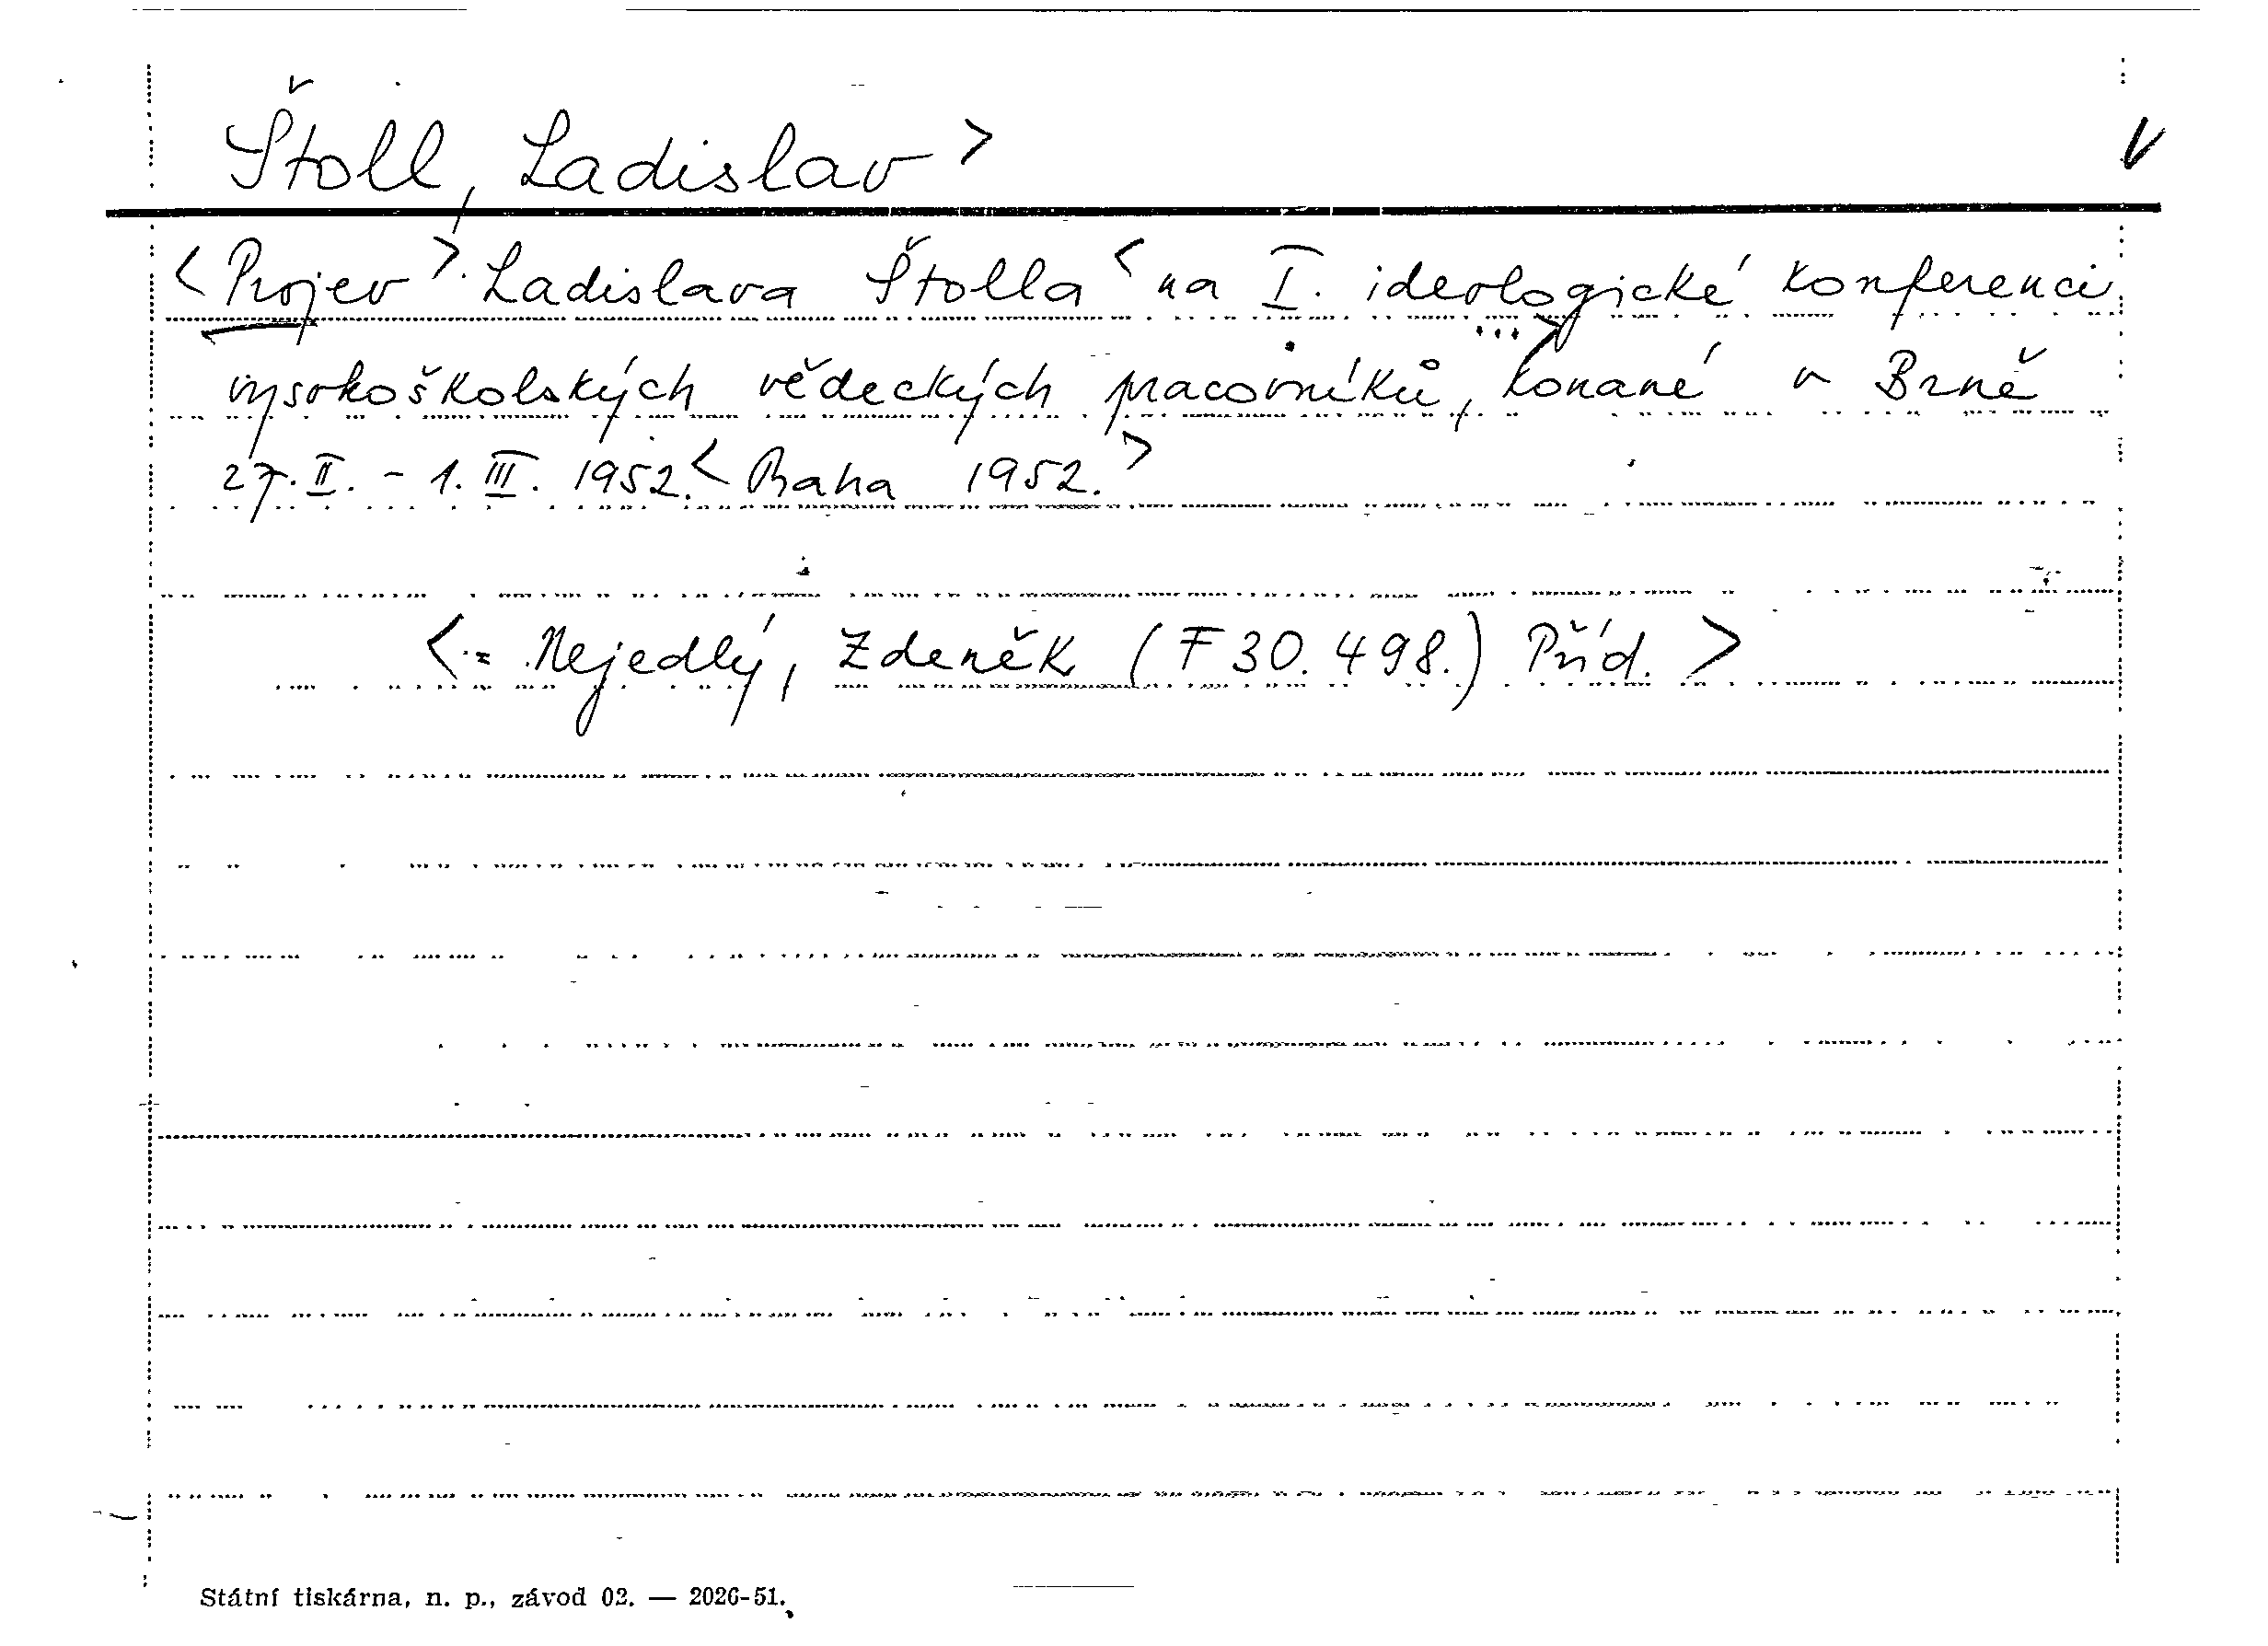 Štoll, Ladislav > V
<Projev> Ladislava Štolla < na I. ideologické konferenci
vysokoškolských vědeckých pracovníků, ...> konané v Brně
27. II. - 1. III. 1952. < Praha 1952. >
< = Nejedlý, Zdeněk (F 30.498.) Příd. >
Státní tiskárna, n. p., závod 02. — 2026-51.